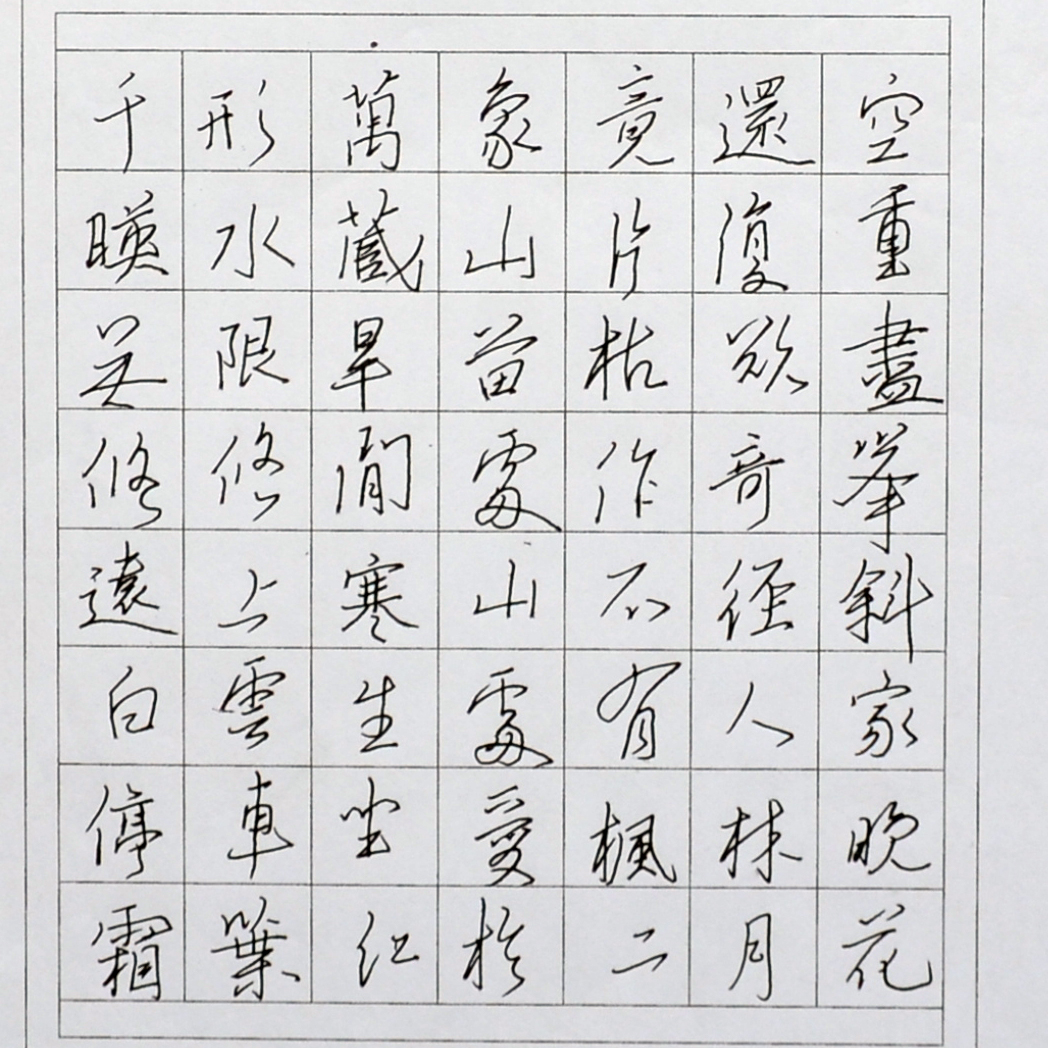 千形萬象竟還空
暎水藏山片復重
無限旱苗枯欲盡
悠悠閒處作奇峯
遠上寒山石徑斜
白雲生處有人家
停車坐愛楓林晚
霜葉紅於二月花